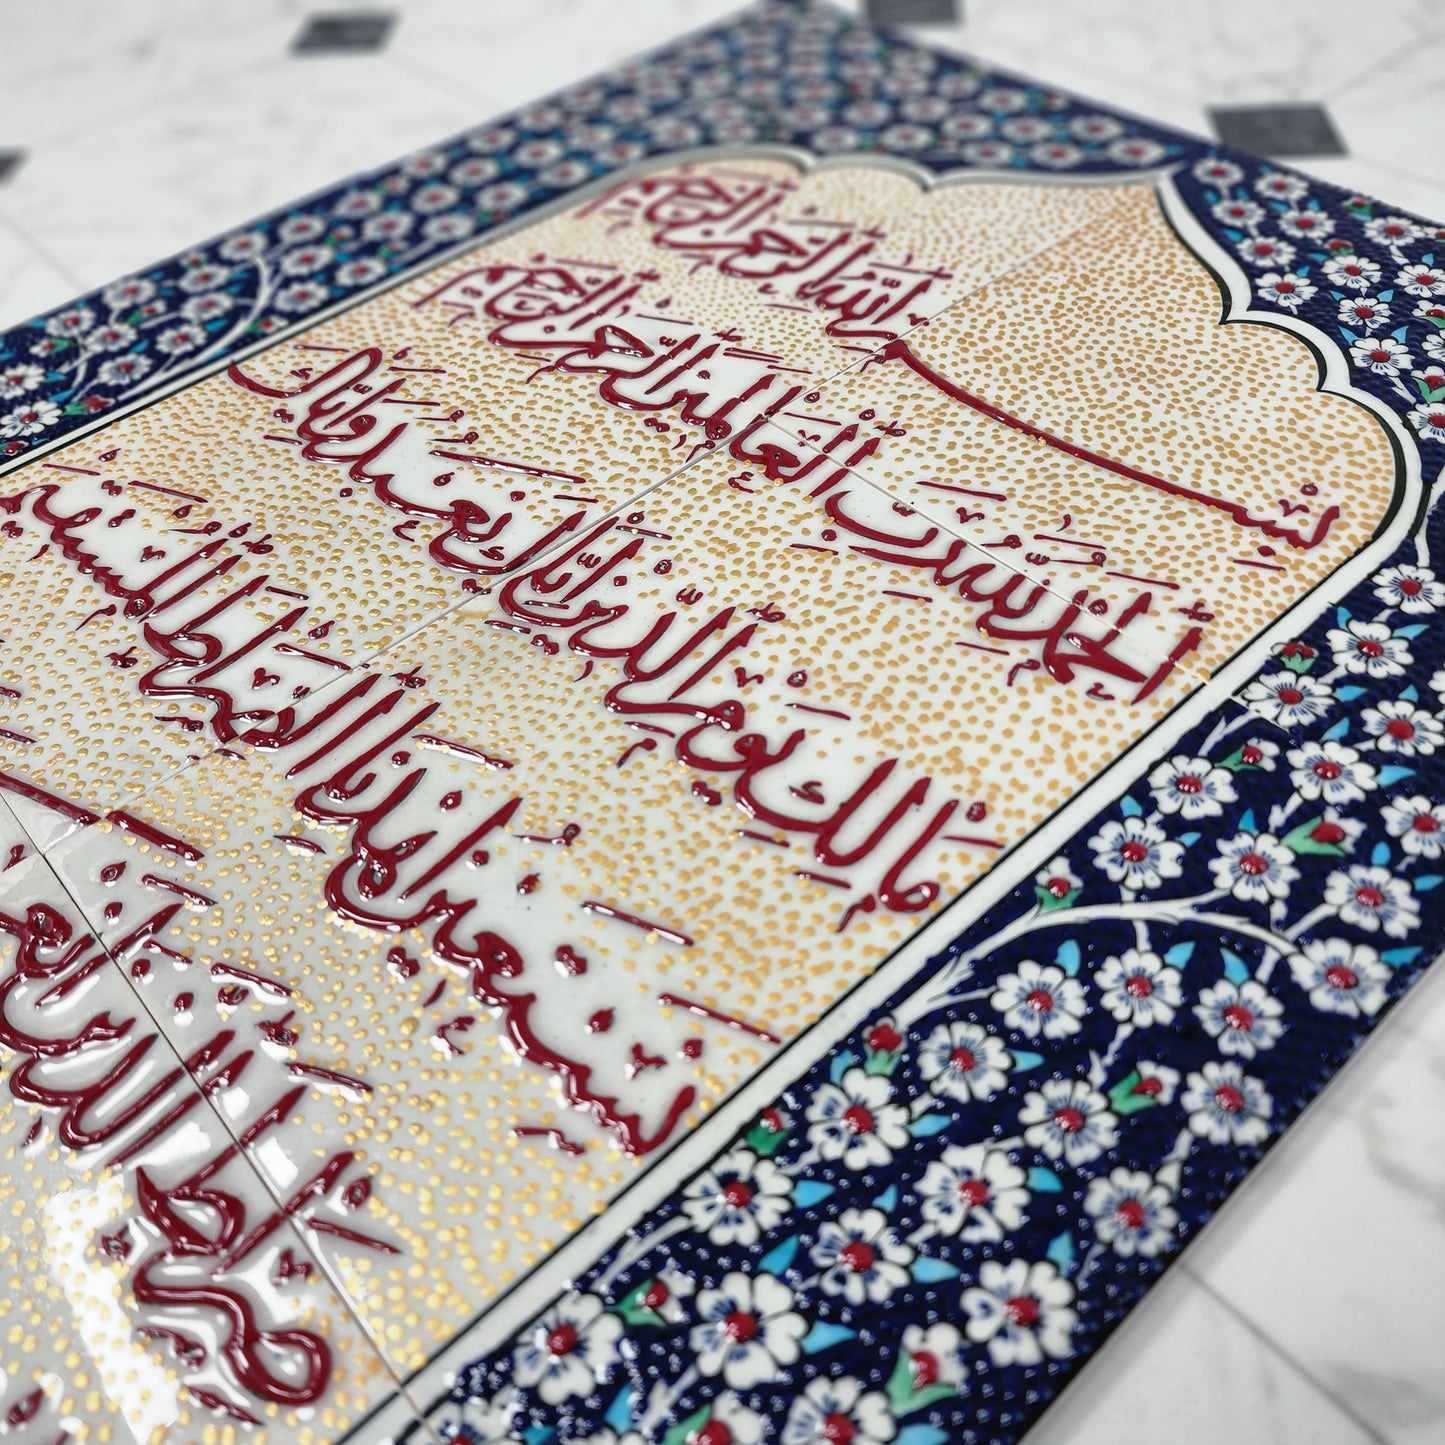 بِسْمِ اللَّهِ الرَّحْمَنِ الرَّحِيمِ
اَلْحَمْدُ لِلَّهِ رَبِّ الْعَالَمِينَ الرَّحْمَنِ الرَّحِيمِ
مَالِكِ يَوْمِ الدِّينِ إِيَّاكَ نَعْبُدُ وَإِيَّاكَ
نَسْتَعِينُ اِهْدِنَا الصِّرَاطَ الْمُسْتَقِيمَ
صِرَاطَ الَّذِينَ